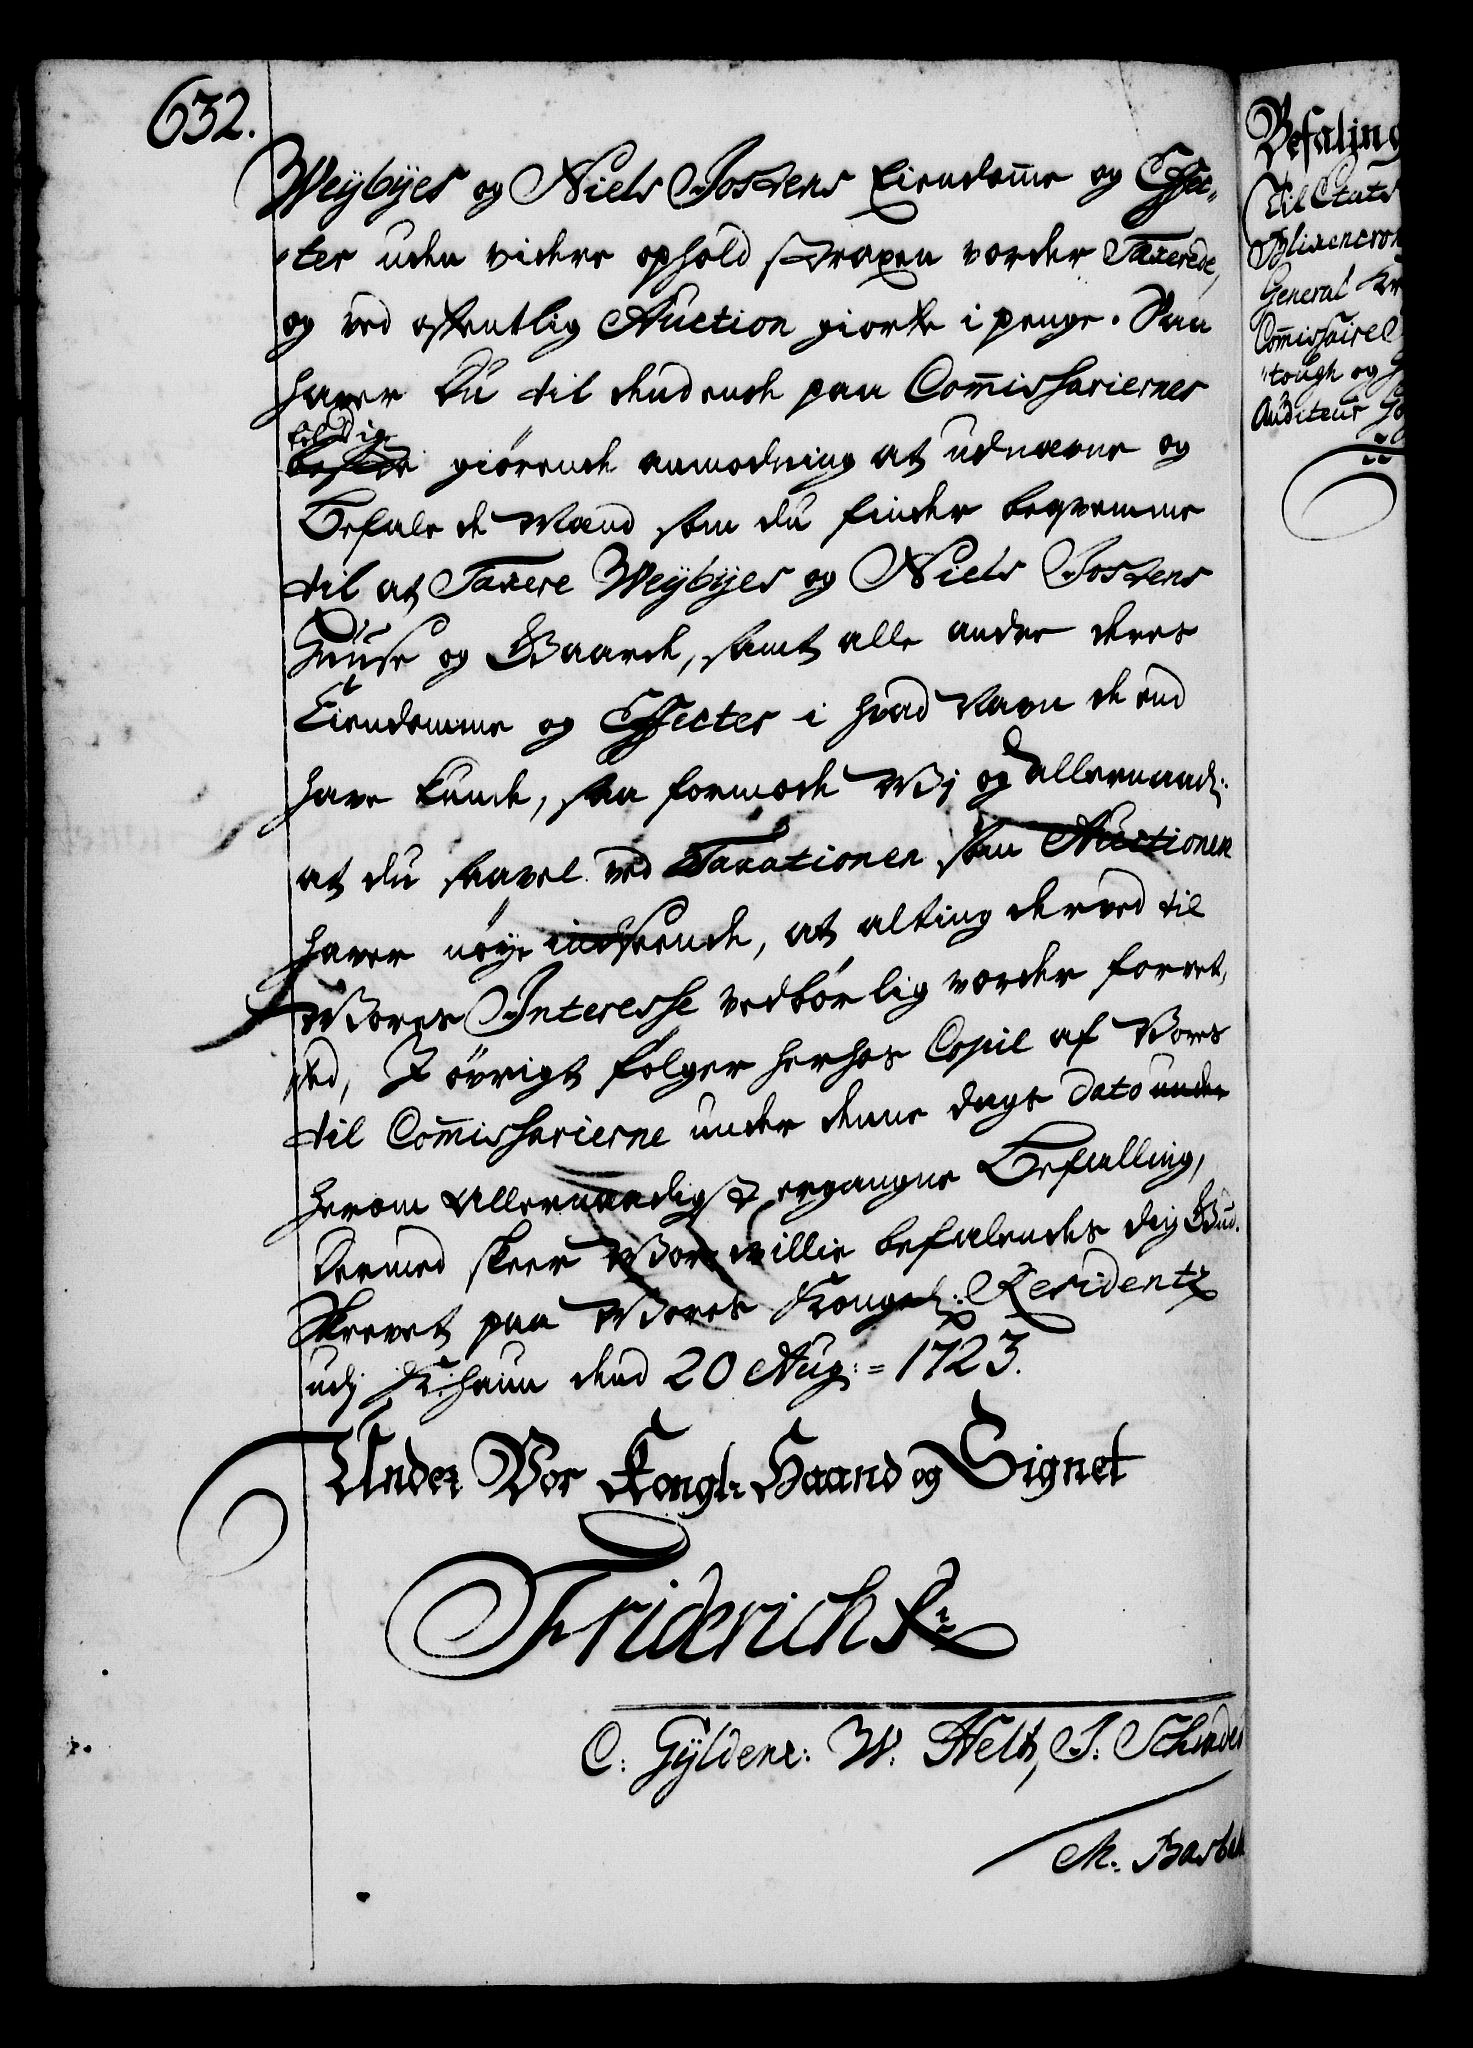 632.
Weÿbÿes og Niels Jostens Eiendome og Effec-
-ter uden videre ophold straxen vorder Taxerede,
og ved offentlig Auction giorte i penge. Saa
haver du til dend ende paa Commissariernes
giörende anmodning at udnævne og
Befale de Mænd som du finder beqvemme
til at Taxere Weÿbÿes og Niels Jostens
Huuse og Gaarde, samt alle andre deres
Eiendomme og Effecter i hvad Navn de end
have kunde, saa formode Wj og allernaadj:
at du saavel ved Taxationen som Auctionen
haver nöye indseende, at alting derved til
Vores Interesse vedbörlig vorder forret,
sted, I övrigt fölger herhos Copie af Vores
til Commissarierne under denne dags Dato under
herom Allernaadigst ergangne Befalling,
Dermed skeer Vor villie befalendes dig Gud.
Skrevet paa Vores Kongel: Residentz
udj K:haun dend 20 Aug: = 1723.
Under Vor Kongl: Haand og Signet
Friderich R:
C: Gÿldenc: W. Helt, J: Schrader
M: Basb
Befaling
Til Etats
Blixencron
General Kr
Commissaire
"tough og
Auditeur